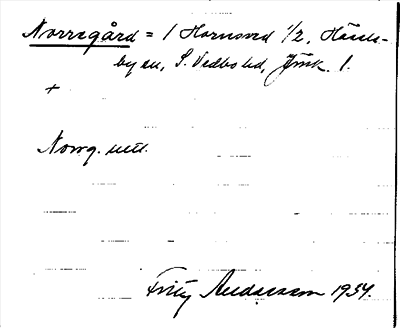 Norregård = 1 Hornsved 1/2, Hässle-
by sn, S. Vedbo hd, Jönk. l.
+
Norrg. utt.
Fritz Andersson 1934.